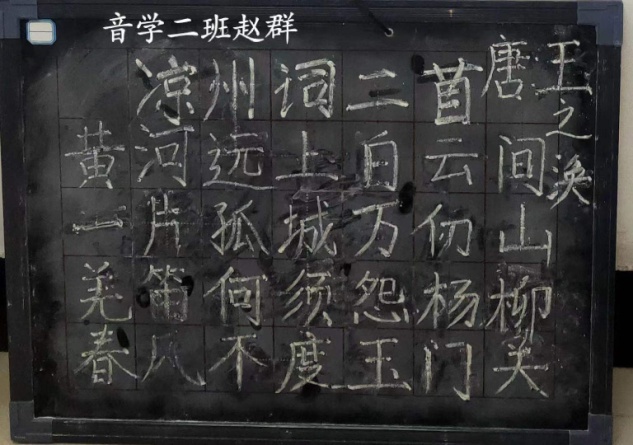 音学二班赵群
凉州词二首 唐 王之涣
黄河远上白云间
一片孤城万仞山
羌笛何须怨杨柳
春风不度玉门关